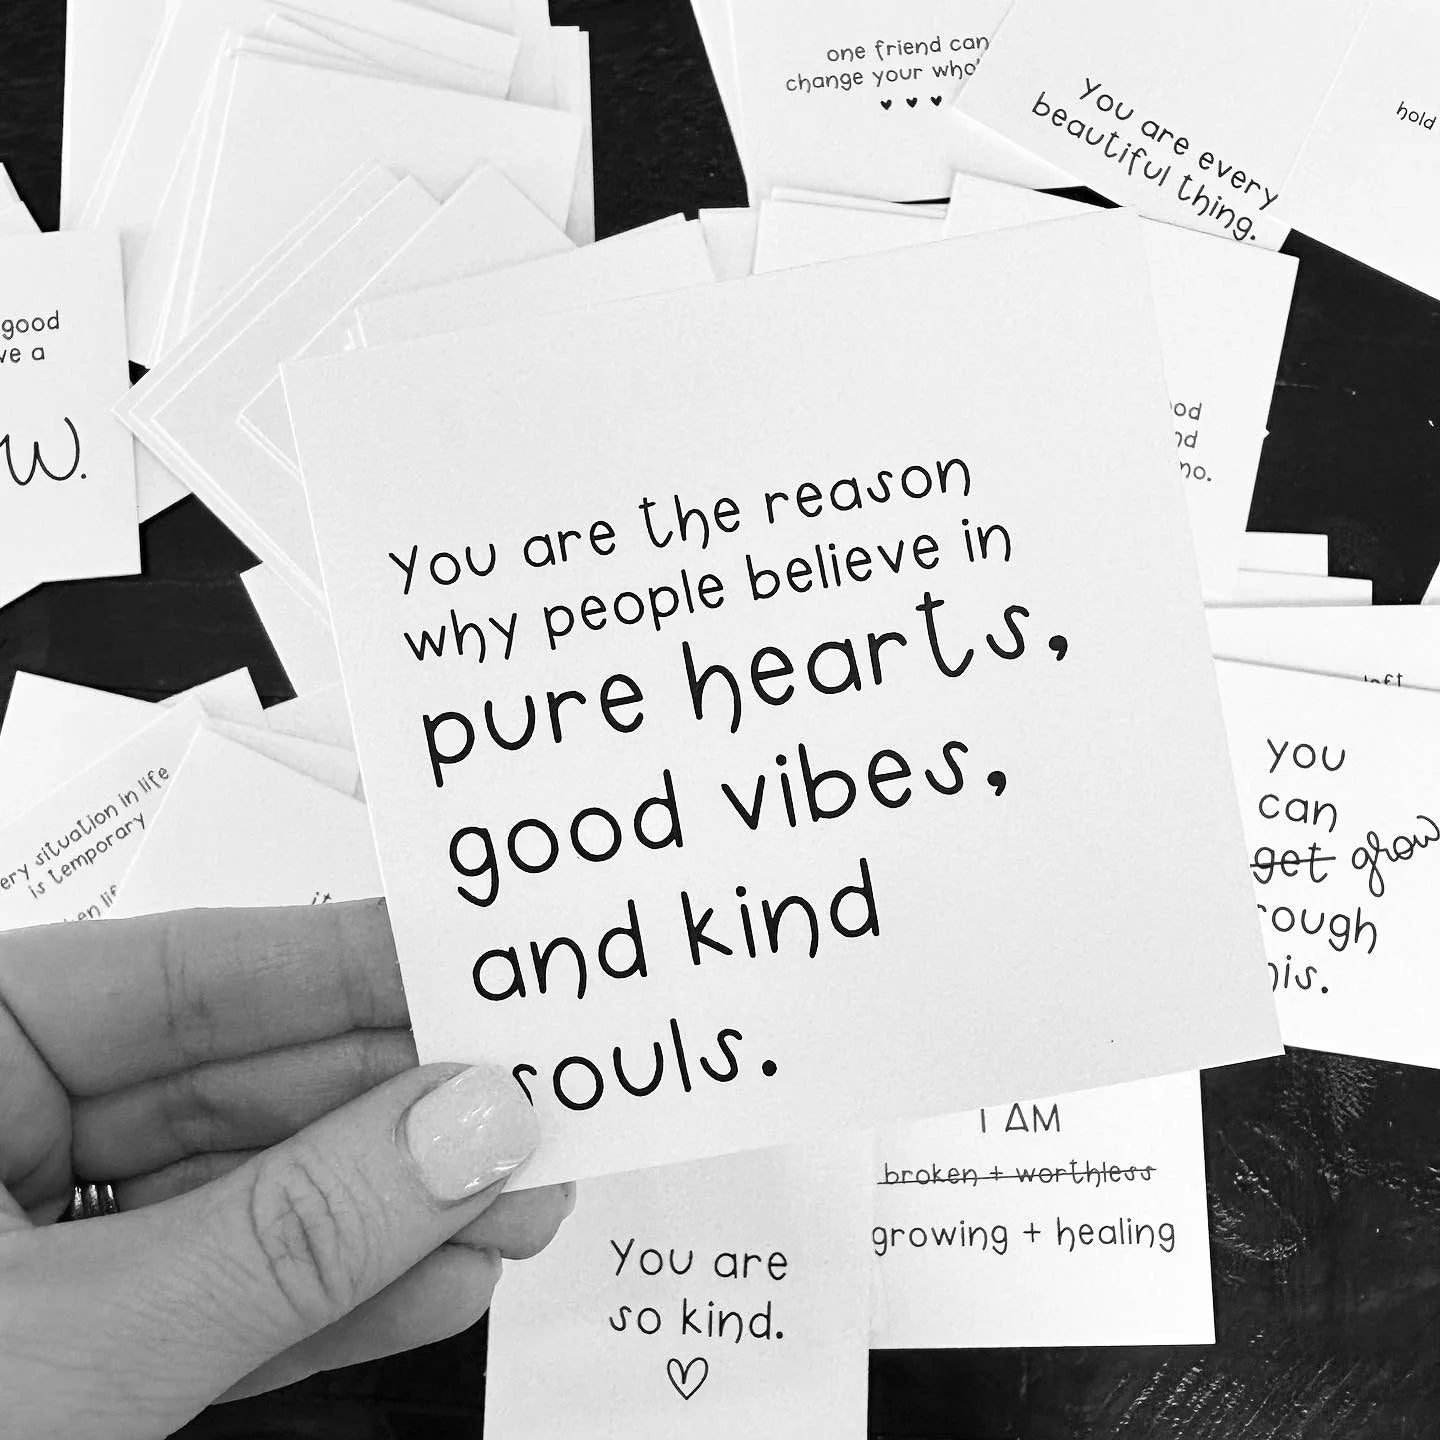 one friend can
change your
you are every
beautiful thing.
hold
good
a
you are the reason
why people believe in
pure hearts,
good vibes,
and kind
souls.
no.
situation in life
is temporary
you
can
get grow
I AM
broken + worthless
growing + healing
you are
so kind.